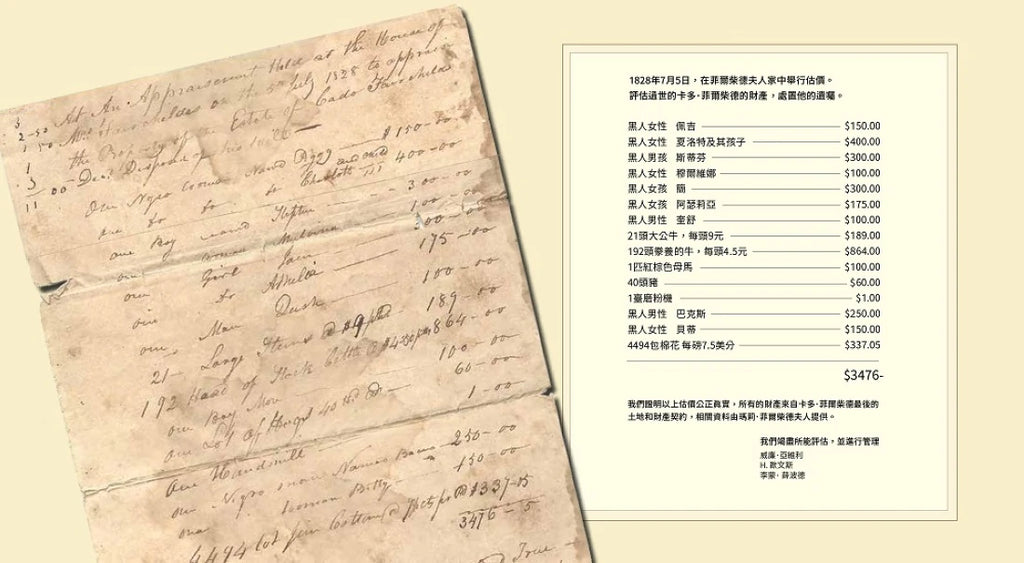 At An Appraisement Held at the House of
Mrs Fairchildes on the 5th July 1828 to appraise
the Property of the Estate of Cado Fairchild
Dec. Disposed of his will
One Negro woman Named Peggy $150-00
one do to do Charlotte and child 400-00
one Boy named Stephen 300-00
one woman Melvina 100-00
one Girl Jane 300-00
one do Athelia 175-00
one Man Dush 100-00
21 Large Steers @ $9 189-00
192 Head of Stock Cattle @ 864-00
one Bay Mare 100-00
one Lot of Hogs 40 Hd 60-00
one Handmill 1-00
one Negro man Names 250-00
one woman Bitty 150-00
4494 lbt Cotton @ $337-
3476-5
True
1828年7月5日，在菲爾柴德夫人家中舉行估價。
評估過世的卡多·菲爾柴德的財產，處置他的遺囑。
黑人女性 佩吉 $150.00
黑人女性 夏洛特及其孩子 $400.00
黑人男孩 斯蒂芬 $300.00
黑人女性 穆爾維娜 $100.00
黑人女孩 簡 $300.00
黑人女孩 阿瑟莉亞 $175.00
黑人男性 奎舒 $100.00
21頭大公牛，每頭9元 $189.00
192頭豢養的牛，每頭4.5元 $864.00
1匹紅棕色母馬 $100.00
40頭豬 $60.00
1臺磨粉機 $1.00
黑人男性 巴克斯 $250.00
黑人女性 貝蒂 $150.00
4494包棉花 每磅7.5美分 $337.05
$3476-
我們證明以上估價公正真實，所有的財產來自卡多·菲爾柴德最後的
土地和財產契約，相關資料由瑪莉·菲爾柴德夫人提供。
我們竭盡所能評估，並進行管理
威廉·亞維利
H. 歐文斯
李蒙·薛波德